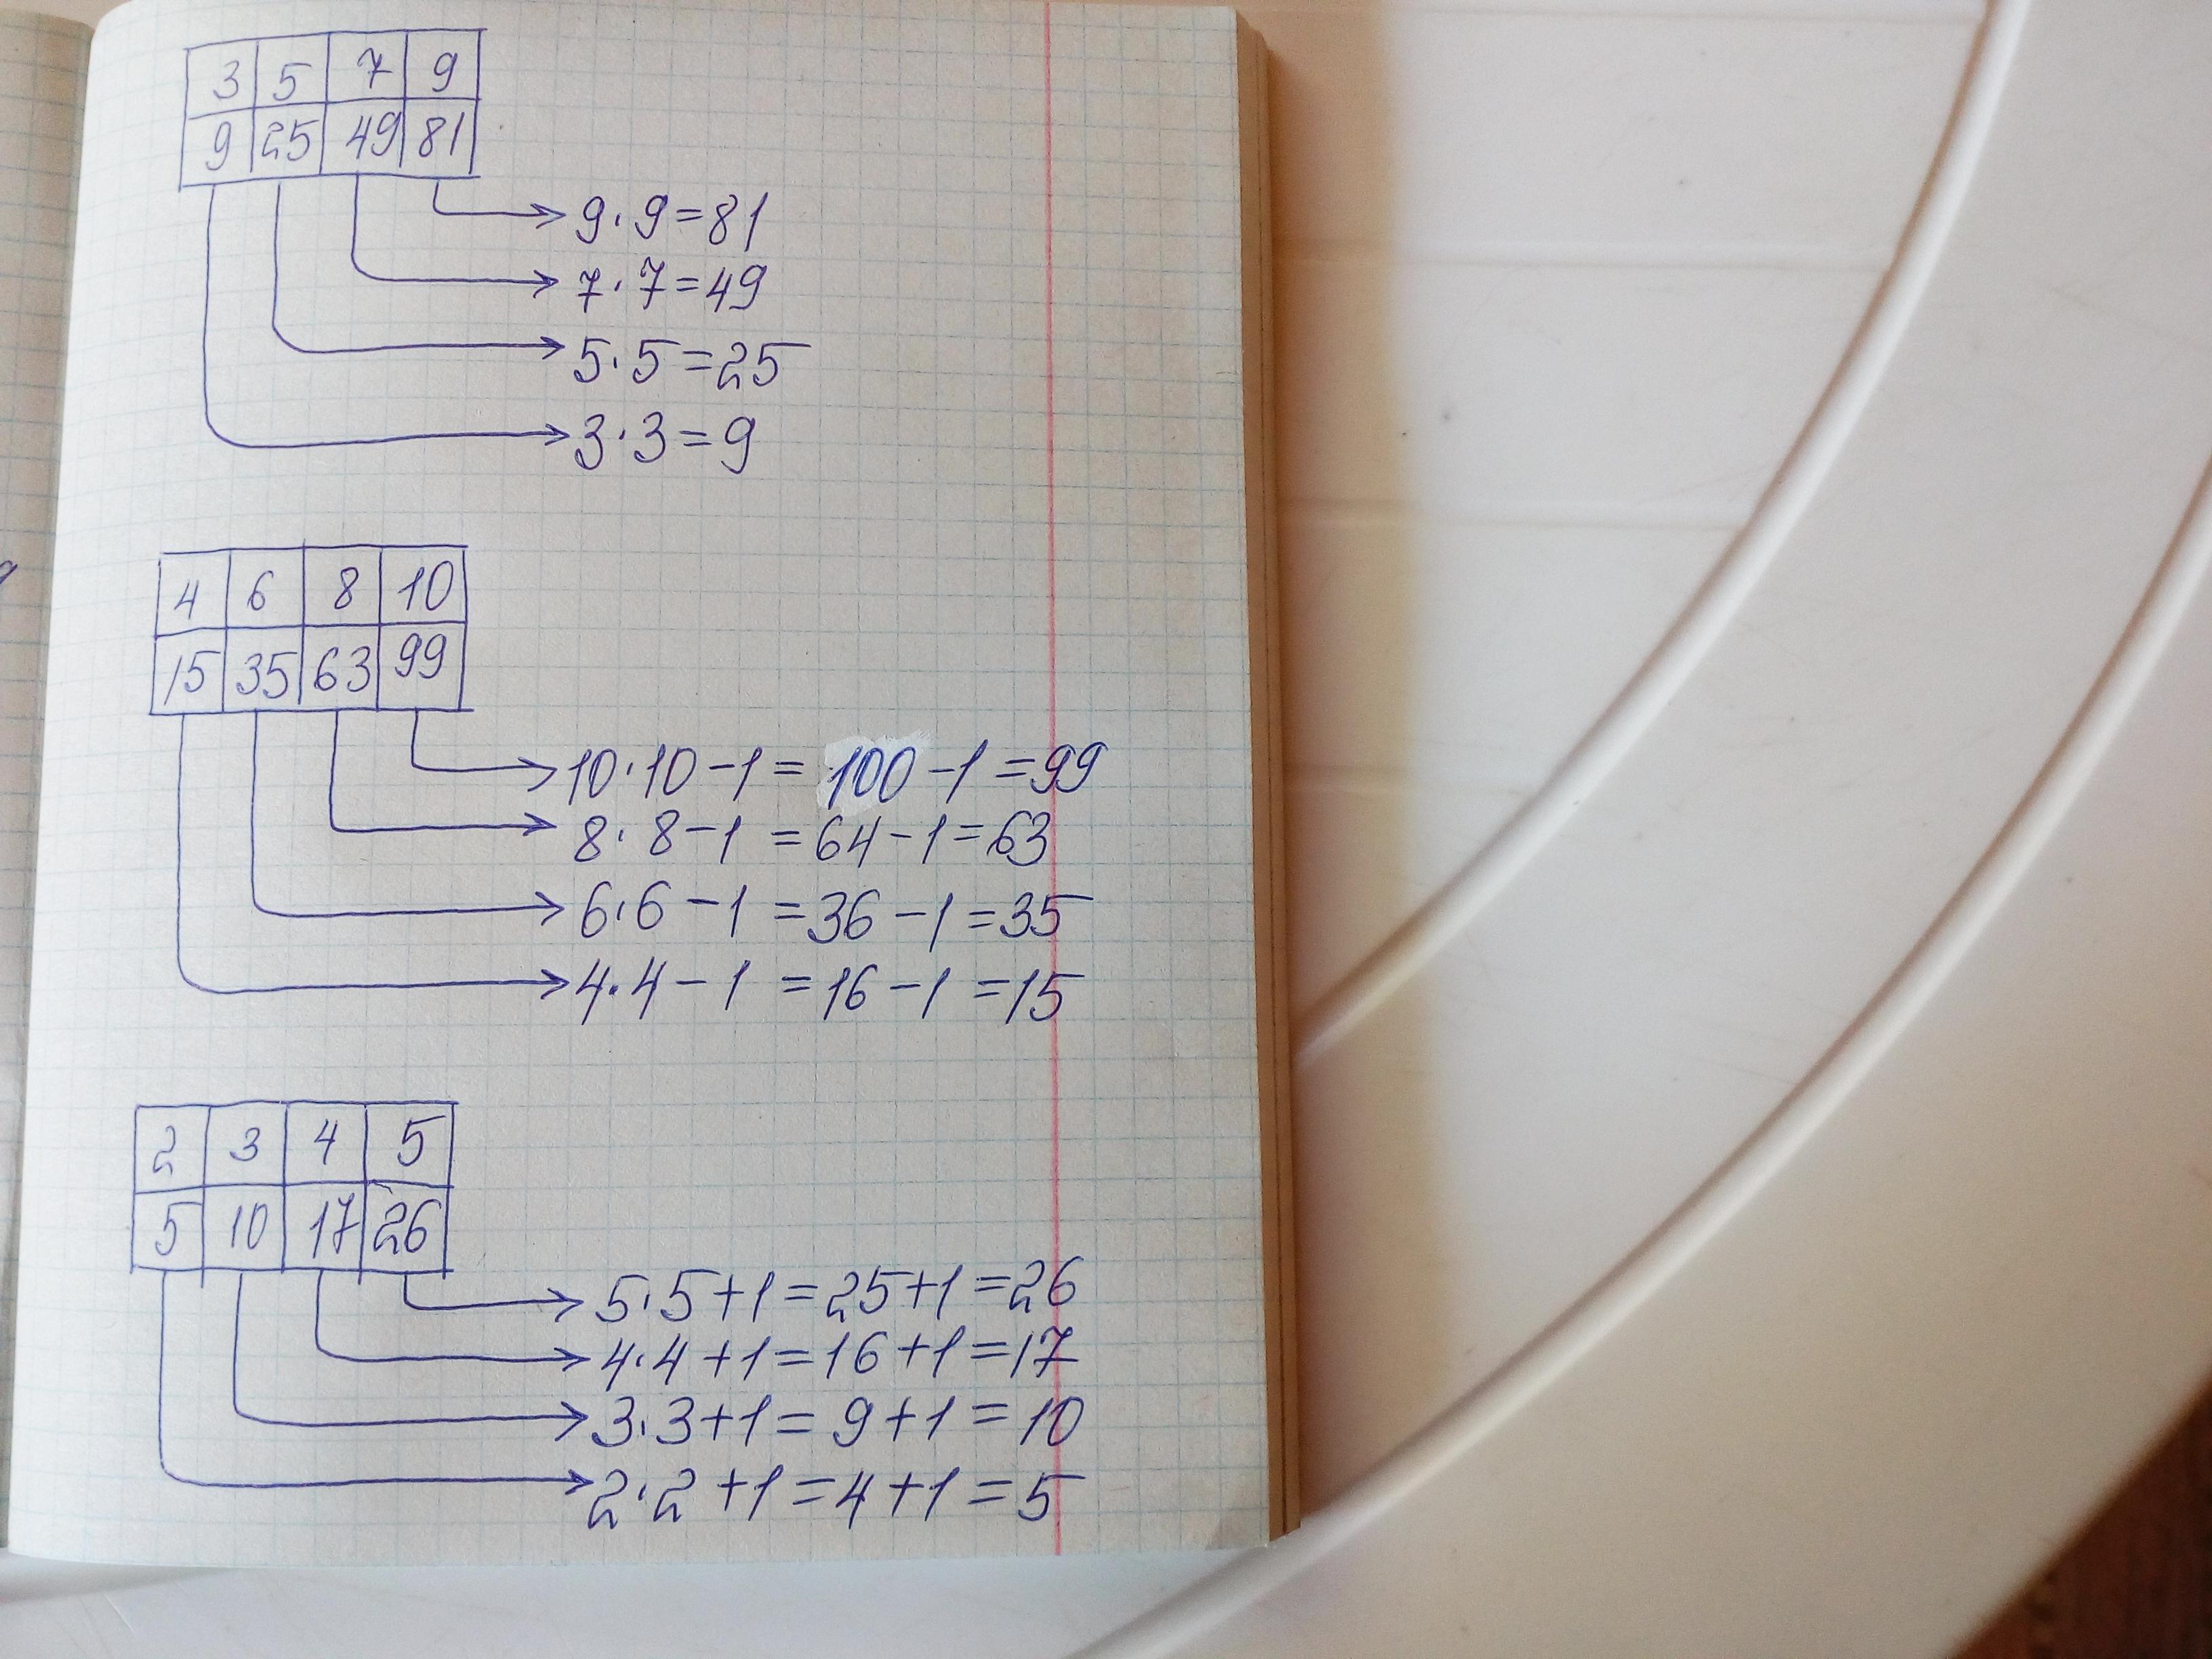 3 5 7 9
9 25 49 81
9·9=81
7·7=49
5·5=25
3·3=9
4 6 8 10
15 35 63 99
10·10-1=100-1=99
8·8-1=64-1=63
6·6-1=36-1=35
4·4-1=16-1=15
2 3 4 5
5 10 17 26
5·5+1=25+1=26
4·4+1=16+1=17
3·3+1=9+1=10
2·2+1=4+1=5